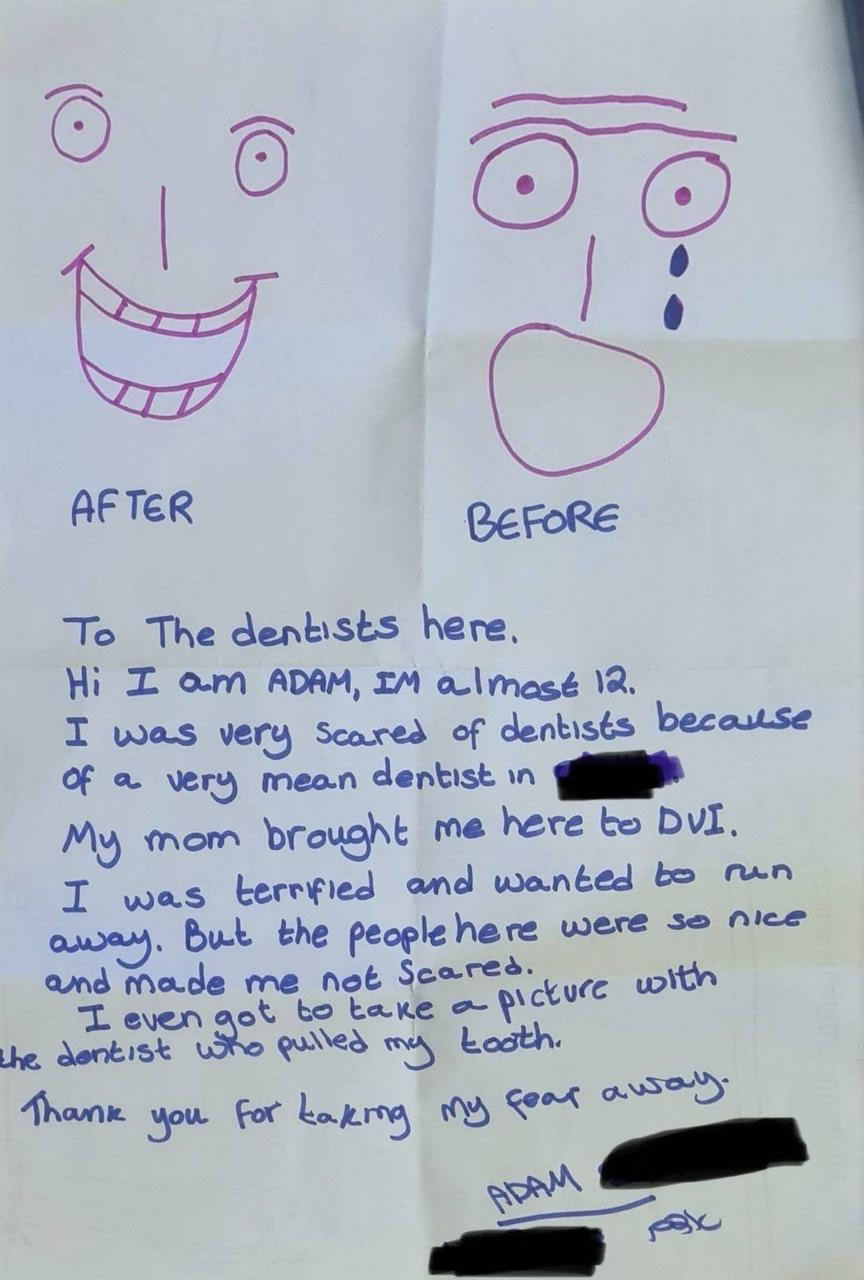 AFTER
BEFORE
To The dentists here.
Hi I am ADAM, IM almost 12.
I was very scared of dentists because
of a very mean dentist in
My mom brought me here to DVI.
I was terrified and wanted to run
away. But the people here were so nice
and made me not scared.
I even got to take a picture with
the dentist who pulled my tooth.
Thank you for taking my fear away.
ADAM